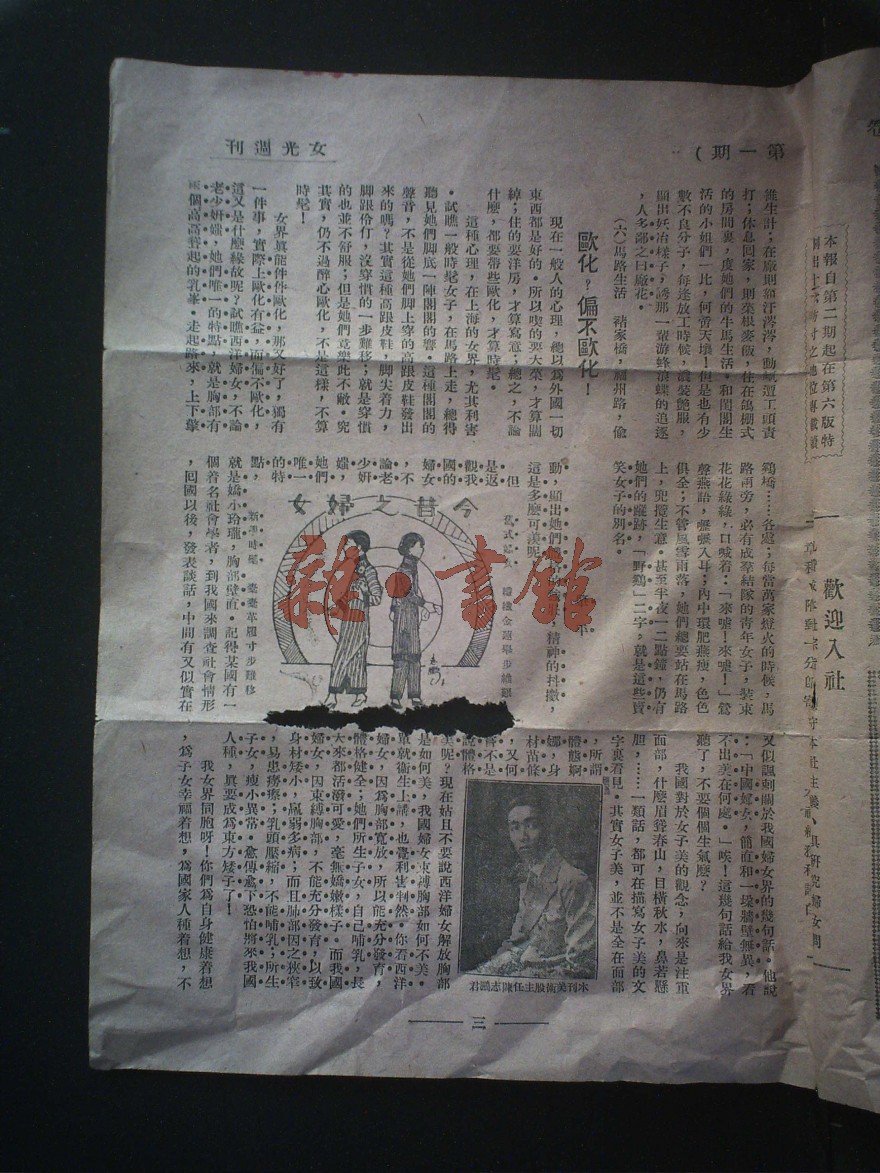 第一期)
女光週刊
維生計；在廠則額汗涔涔，動輒遭工頭責
打；休息回家，則菜根麥飯，住在鴿棚式
的房間裏，度她們的牛馬生活。和閨閣生
活的小姐們一比，何啻天壤！但是也有少
數不良分子，每逢放工時候，濃裝艷服，
顯出妖冶樣子；誘那一輩游蜂浪蝶的追逐
，人多鄙之曰廠花。
(六)馬路生活　褚家橋，福州路，偷
鷄橋……各處；每當萬家燈火的時候，馬
路兩旁，必有成羣結隊的青年女子，裝束
花花綠綠，口喊着：「來噓！來噓！」鶯
聲燕語，嚦嚦入耳；內中環肥燕瘦，色色
俱全；不管風雪雨落，她們總要站在馬路
上，兜攬生意。甚至半夜一二點鐘，仍有
她們的蹤跡，「野鷄」二字，就是這些賣
笑女子的別名。
歐化？偏不歐化！
現在一般人的心理，總以爲外國一切
東西都是好的。所以喫的要大菜，才算闊
綽；住的要洋房，才算寫意；總之，不論
什麽，都要帶些歐化，才算時髦。
這種心理，在上海的女界，尤其利害
。試瞧一般時髦女子，在馬路上走，總得
聽見她們脚底一陣閣閣的響。這種閣閣的
聲音，不是從她們脚上穿的高跟皮鞋發出
來的嗎？其實這種高跟皮鞋，脚尖着力，
脚跟伶仃，沒穿慣的一步難移；就是穿慣
的也並不舒服；但是她們竟樂此不敝。究
其實，仍不過醉心歐化，不是這樣，不算
時髦！
女界眞能件件歐化，那又好了，獨有
一件事，實際上歐化有益，而偏不歐化，
這又是什麽緣故呢？試瞧西洋婦女，不論
老少妍媸，她們唯一的特點，就是胸部有
兩個高高聳起的乳峯。走起路來，上下擎
動，顯出她們
精神的抖擻，
這是多麽可美呢
但
是返
觀我
國的
婦女
，不
論老
少妍
媸，
她們
唯一
的特
點，
今昔之婦女
舊式婦女
新派時髦　槖槖革履寸步難移
就是嬌小玲瓏，胸部壁直。記得某國有一
個着名社會學者，到我國來調查社會情形
，回國以後，發表談話，中間有又似實在
又似諷刺關於我國婦女界的幾句話。他說
：「中國婦女，簡直和一塊牆壁無異，看
不出美在何處。」唉！這幾句話給我女界
聽了，不要個個生氣麽？
我國對於女子美的觀念，向來是注重
面部，什麽眉聳春山，目橫秋水，鼻若懸
胆，……一類話，都可在描寫女子美的文
字裏看見。其實女子美，並不是全在面部
，所謂
體態婀
娜，身
材苗條
，又何
嘗不是
說體格
美呢？現在姑且不要說西洋婦女解放胸部
是如何美，我國婦女束縛胸部如何不美。
單就衞生上講，也覺利害判然。你看西洋
婦女，因爲胸部寬放，所以能充分發育，
體格健全；她們所生子女，自己哺乳，長
大來都活潑可愛，毫無嬌嫩樣子。而我國
婦女，因束縛胸部，不能充分發育，以致
身材矮小，孱弱多病；而且肺部因之狹窄
，易患癆瘵；乳頭壓縮，不能哺乳；所生
子女，瘦小異常。愈傳愈下恐怕將來我國
人種，眞要成爲東方矮子了！
我女界同胞呀！你們爲自身健康着想
，爲子女幸福着想，爲國家人種着想，不
本刊美術股主任陳志鵬君
三
本報自第二期起在第六版特
歡迎入社
雜·書館